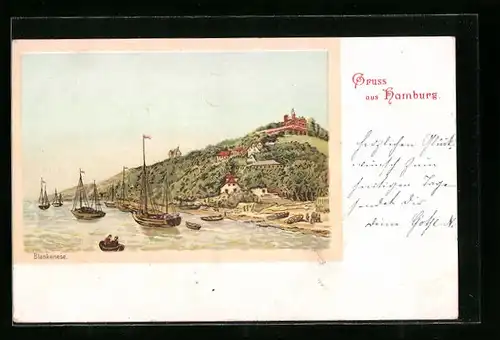 Gruss
aus Hamburg.
herzlichen Glück-
wunsch zum
heutigen Tage
sendet dir
deine
Blankenese.